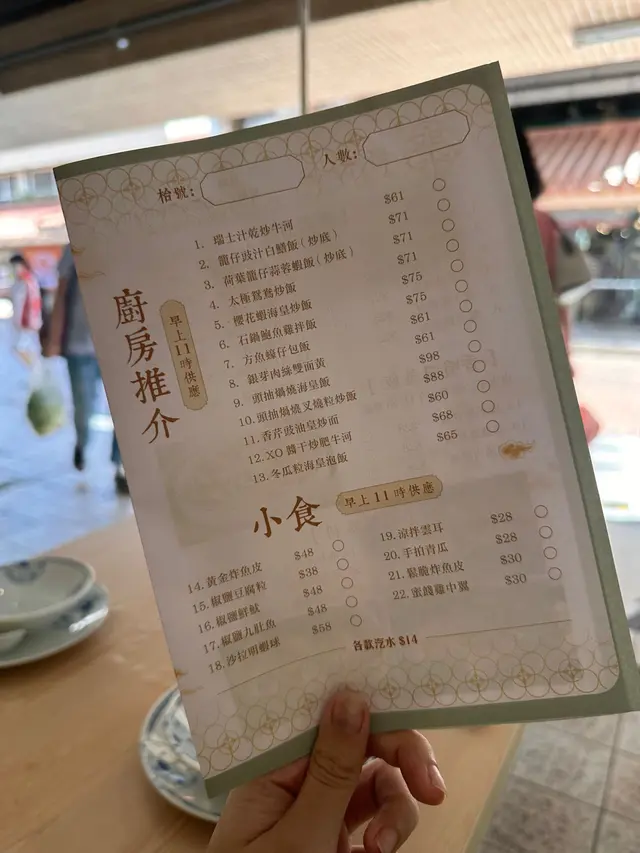 枱號:
人數:
廚房推介
早上11時供應
1. 瑞士汁乾炒牛河 $61
2. 籠仔豉汁白鱔飯（炒底） $71
3. 荷葉籠仔蒜蓉蝦飯（炒底） $71
4. 太極鴛鴦炒飯 $71
5. 櫻花蝦海皇炒飯 $75
6. 石鍋鮑魚雞拌飯 $75
7. 方魚蠔仔包飯 $61
8. 銀芽肉絲雙面黃 $61
9. 頭抽焗燒海皇飯 $98
10. 頭抽焗燒叉燒粒炒飯 $88
11. 香芹豉油皇炒面 $60
12. XO 醬干炒肥牛河 $68
13. 冬瓜粒海皇泡飯 $65
小食
早上11時供應
14. 黃金炸魚皮 $48
15. 椒鹽豆腐粒 $38
16. 椒鹽鮮魷 $48
17. 椒鹽九肚魚 $48
18. 沙拉明蝦球 $58
19. 涼拌雲耳 $28
20. 手拍青瓜 $28
21. 鬆脆炸魚皮 $30
22. 蜜餞雞中翼 $30
各款汽水 $14